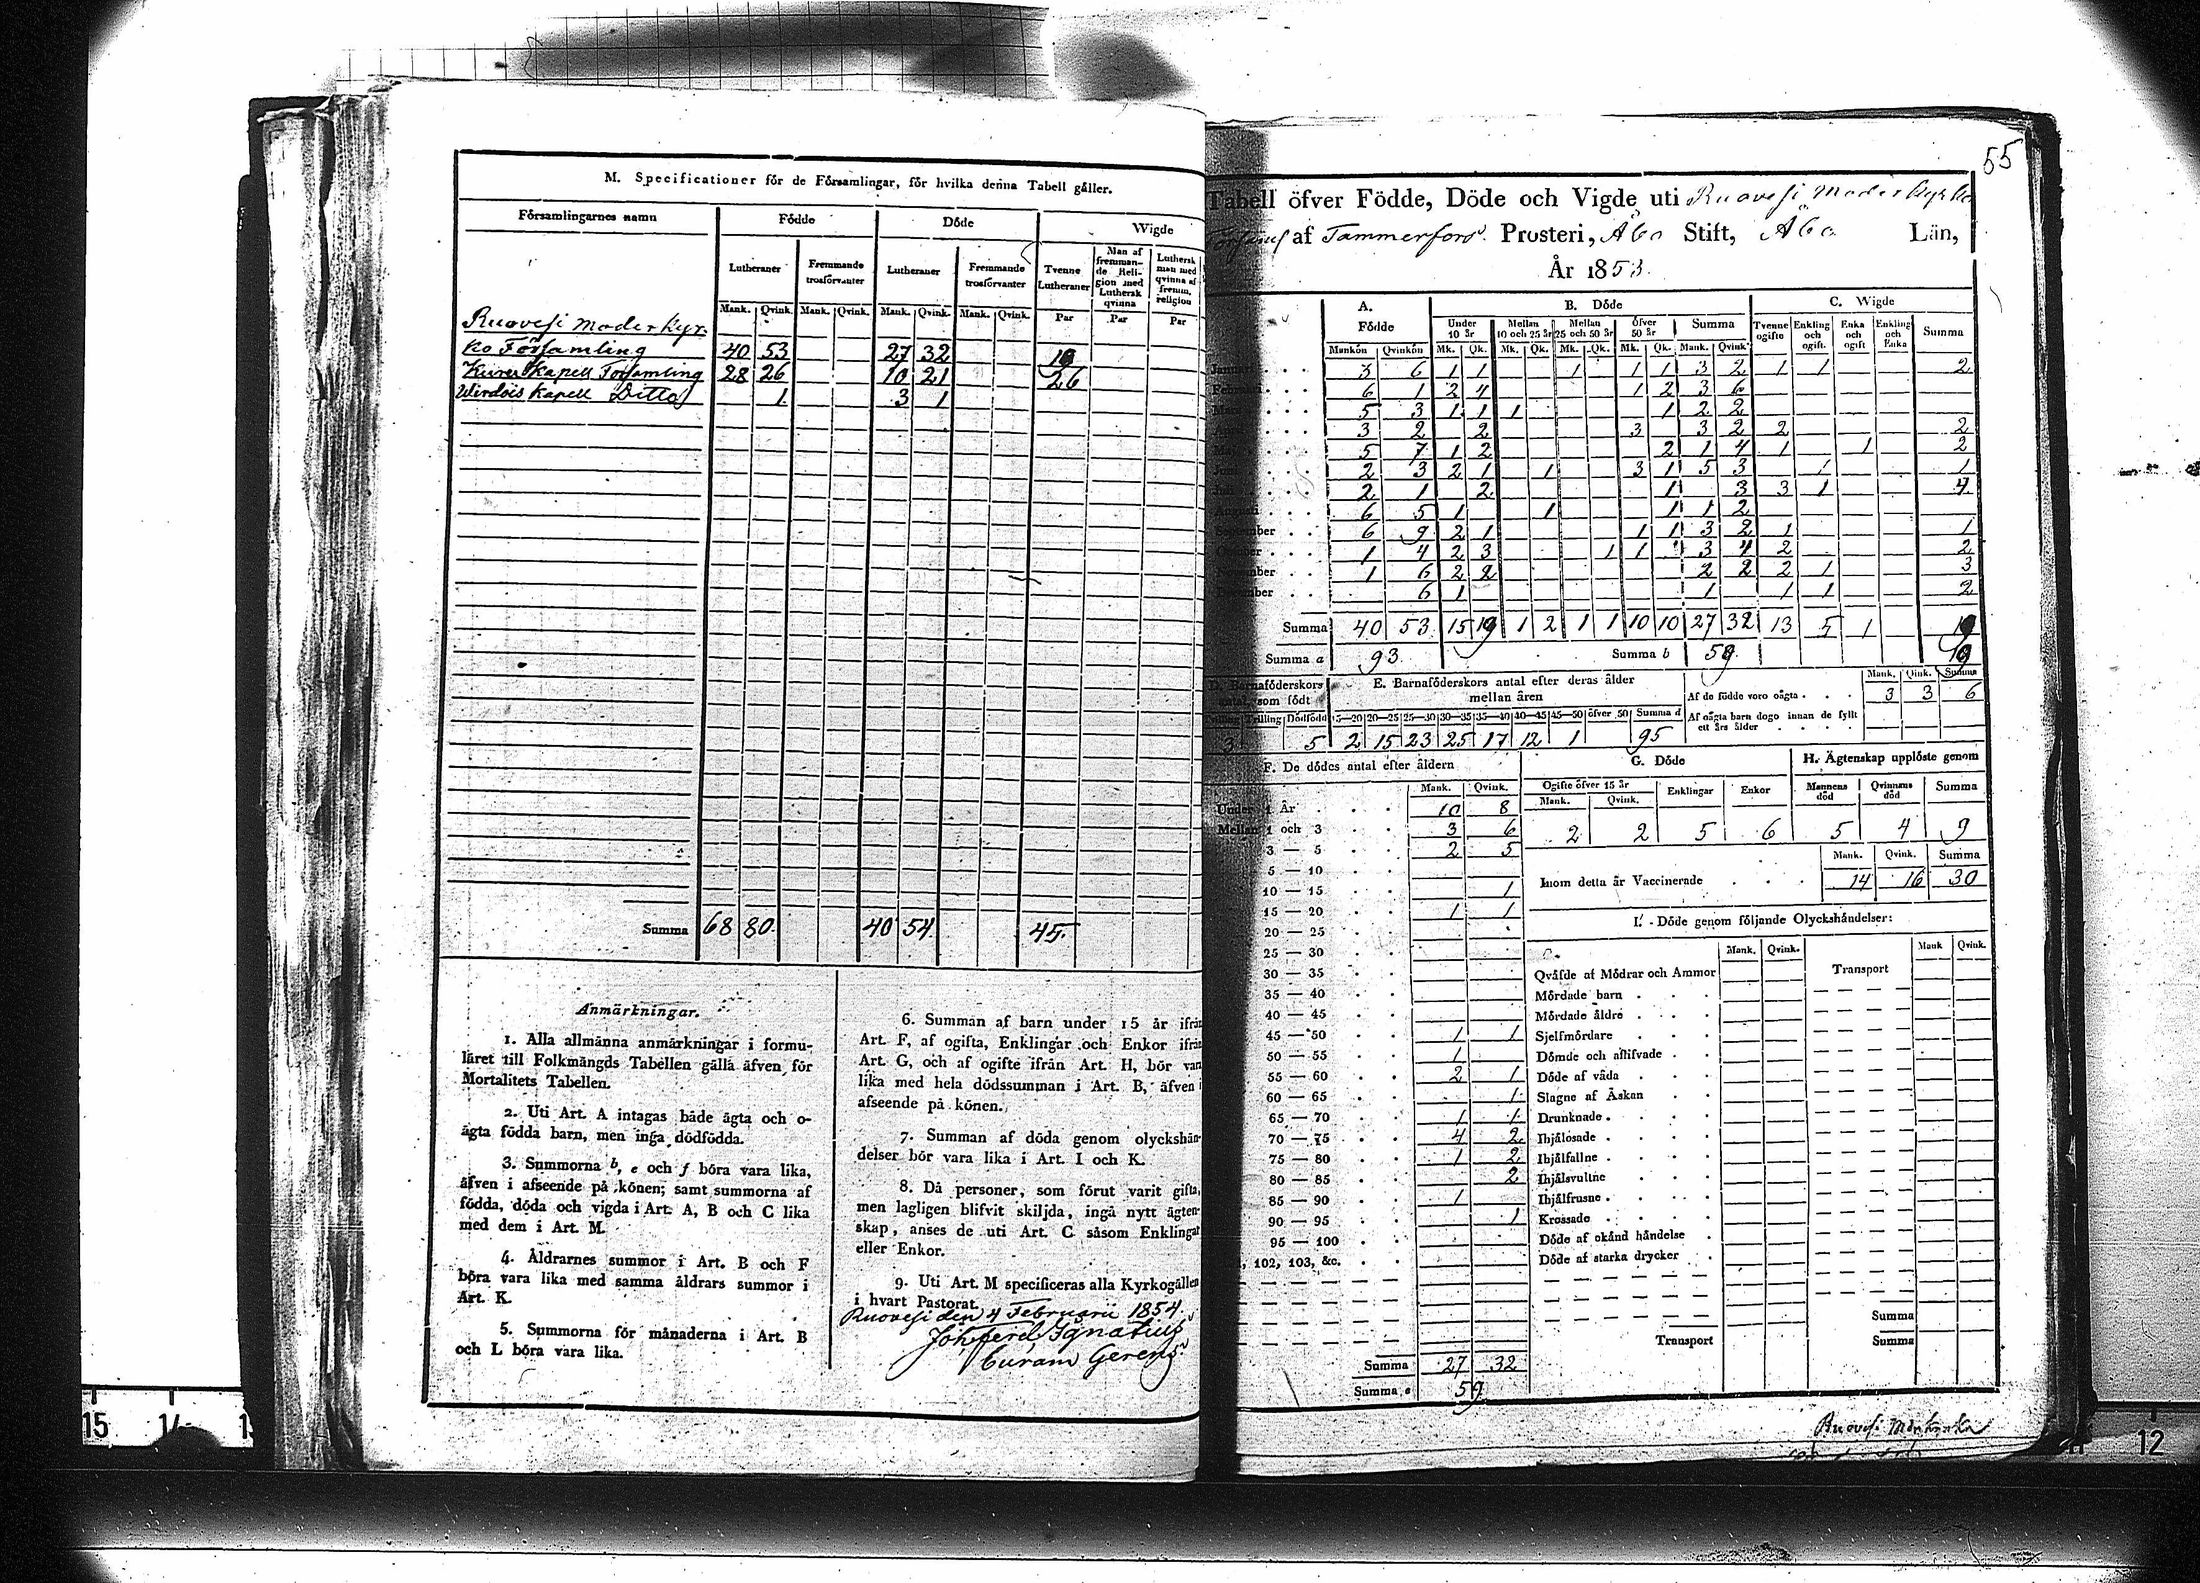 M. Specificationer för de Församlingar, för hvilka denna Tabell gäller.
Församlingarnes namn Födde Döde Wigde
Lutheraner Fremmande trosförvanter Lutheraner Fremmande trosförvanter Tvenne Lutheraner Man af fremmande Religion med Luthersk qvinna Luthersk man med qvinna af fremm. religion
Mank. Qvink. Mank. Qvink. Mank. Qvink. Mank. Qvink. Par Par Par
Ruovesi Moderkyr-
ko Församling 40 53 27 32 19
Kuru Kapell Församling 28 26 10 21 26
Wirdois Kapell Ditto 1 3 1
Summa 68 80 40 54 45.
Anmärkningar.
1. Alla allmänna anmärkningar i formu-
läret till Folkmängds Tabellen gälla äfven för
Mortalitets Tabellen.
2. Uti Art. A intagas både ägta och o-
ägta födda barn, men inga dödfödda.
3. Summorna b, e och f böra vara lika,
äfven i afseende på könen; samt summorna af
födda, döda och vigda i Art. A, B och C lika
med dem i Art. M.
4. Åldrarnes summor i Art. B och F
böra vara lika med samma åldrars summor i
Art. K.
5. Summorna för månaderna i Art. B
och L böra vara lika.
6. Summan af barn under 15 år ifrån
Art. F, af ogifta, Enklingar och Enkor ifrån
Art. G, och af ogifte ifrån Art. H, bör vara
lika med hela dödssumman i Art. B, äfven i
afseende på könen.
7. Summan af döda genom olyckshän-
delser bör vara lika i Art. I och K.
8. Då personer, som förut varit gifta,
men lagligen blifvit skiljda, ingå nytt ägten-
skap, anses de uti Art. C såsom Enklingar
eller Enkor.
9. Uti Art. M specificeras alla Kyrkogällen
i hvart Pastorat.
Ruovesi den 4 Februarii 1854.
Joh Ferd Ignatius
Curam Gerens
55
Tabell öfver Födde, Döde och Vigde uti Ruovesi Moderkyrko
Församl af Tammerfors Prosteri, Åbo Stift, Åbo Län,
År 1853.
A. Födde B. Döde C. Wigde
Under 10 år Mellan 10 och 25 år Mellan 25 och 50 år öfver 50 år Summa Tvenne ogifte Enkling och ogift. Enka och ogift Enkling och Enka Summa
Mankön Qvinkön Mk. Qk. Mk. Qk. Mk. Qk. Mk. Qk. Mank. Qvink.
Januari 3 6 1 1 1 1 1 3 2 1 1 2
Februari 6 1 2 4 1 2 3 6
Mars 5 3 1 1 1 1 2 2
3 2 2 3 3 2 2 2
Maj 5 7 1 2 2 1 4 1 1 2
Juni 2 3 2 1 1 3 1 5 3 1 1
Juli 2 1 2 1 3 3 1 4
Augusti 6 5 1 1 1 1 2
September 6 9 2 1 1 1 3 2 1 1
October 1 4 2 3 1 1 3 4 2 2
November 1 6 2 2 2 2 2 1 3
December 6 1 1 1 1 2
Summa 40 53 15 19 1 2 1 1 10 10 27 32 13 5 1 19
Summa a 93. Summa b 59. 19
D. Barnaföderskors antal, som födt E. Barnaföderskors antal efter deras ålder mellan åren
Mank. Qvink. Summa
Af de födde voro oägta 3 3 6
Af oägta barn dogo innan de fyllt ett års ålder
Tvilling Trilling Dödfödd 15—20 20—25 25—30 30—35 35—40 40—45 45—50 öfver 50 Summa d
3 5 2 15 23 25 17 12 1 95
F. De dödes antal efter åldern
Mank. Qvink.
Under 1 År 10 8
Mellan 1 och 3 3 6
3 — 5 2 5
5 — 10
10 — 15 1
15 — 20 1 1
20 — 25
25 — 30
30 — 35
35 — 40
40 — 45
45 — 50 1 1
50 — 55 1
55 — 60 2 1
60 — 65 1
65 — 70 1 1
70 — 75 4 2
75 — 80 1 2
80 — 85 2
85 — 90 1
90 — 95 1
95 — 100
102, 103, &c.
Summa 27 32
Summa e 59
G. Döde H. Ägtenskap upplöste genom
Ogifte öfver 15 år Enklingar Enkor Mannens död Qvinnans död Summa
Mank. Qvink.
2 2 5 6 5 4 9
Mank. Qvink. Summa
Inom detta år Vaccinerade 14 16 30
I. Döde genom följande Olyckshändelser:
Mank. Qvink. Mank Qvink.
Qväfde af Mödrar och Ammor Transport
Mördade barn
Mördade äldre
Sjelfmördare
Dömde och aflifvade
Döde af våda
Slagne af Åskan
Drunknade
Ihjälösade
Ihjälfallne
Ihjälsvultne
Ihjälfrusne
Krossade
Döde af okänd händelse
Döde af starka drycker
Summa
Transport Summa
Ruovesi
15 14 12